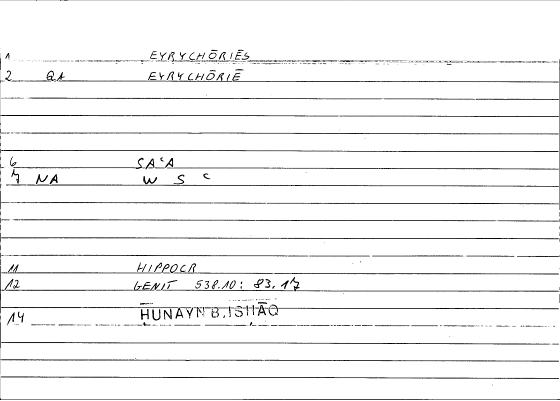 1 EYRYCHŌRIĒS
2 QA EYRYCHŌRIĒ
6 SAʿA
7 NA W S ʿ
11 HIPPOCR
12 GENIT 538.10: 83.17
14 ḤUNAYN B.ISḤĀQ